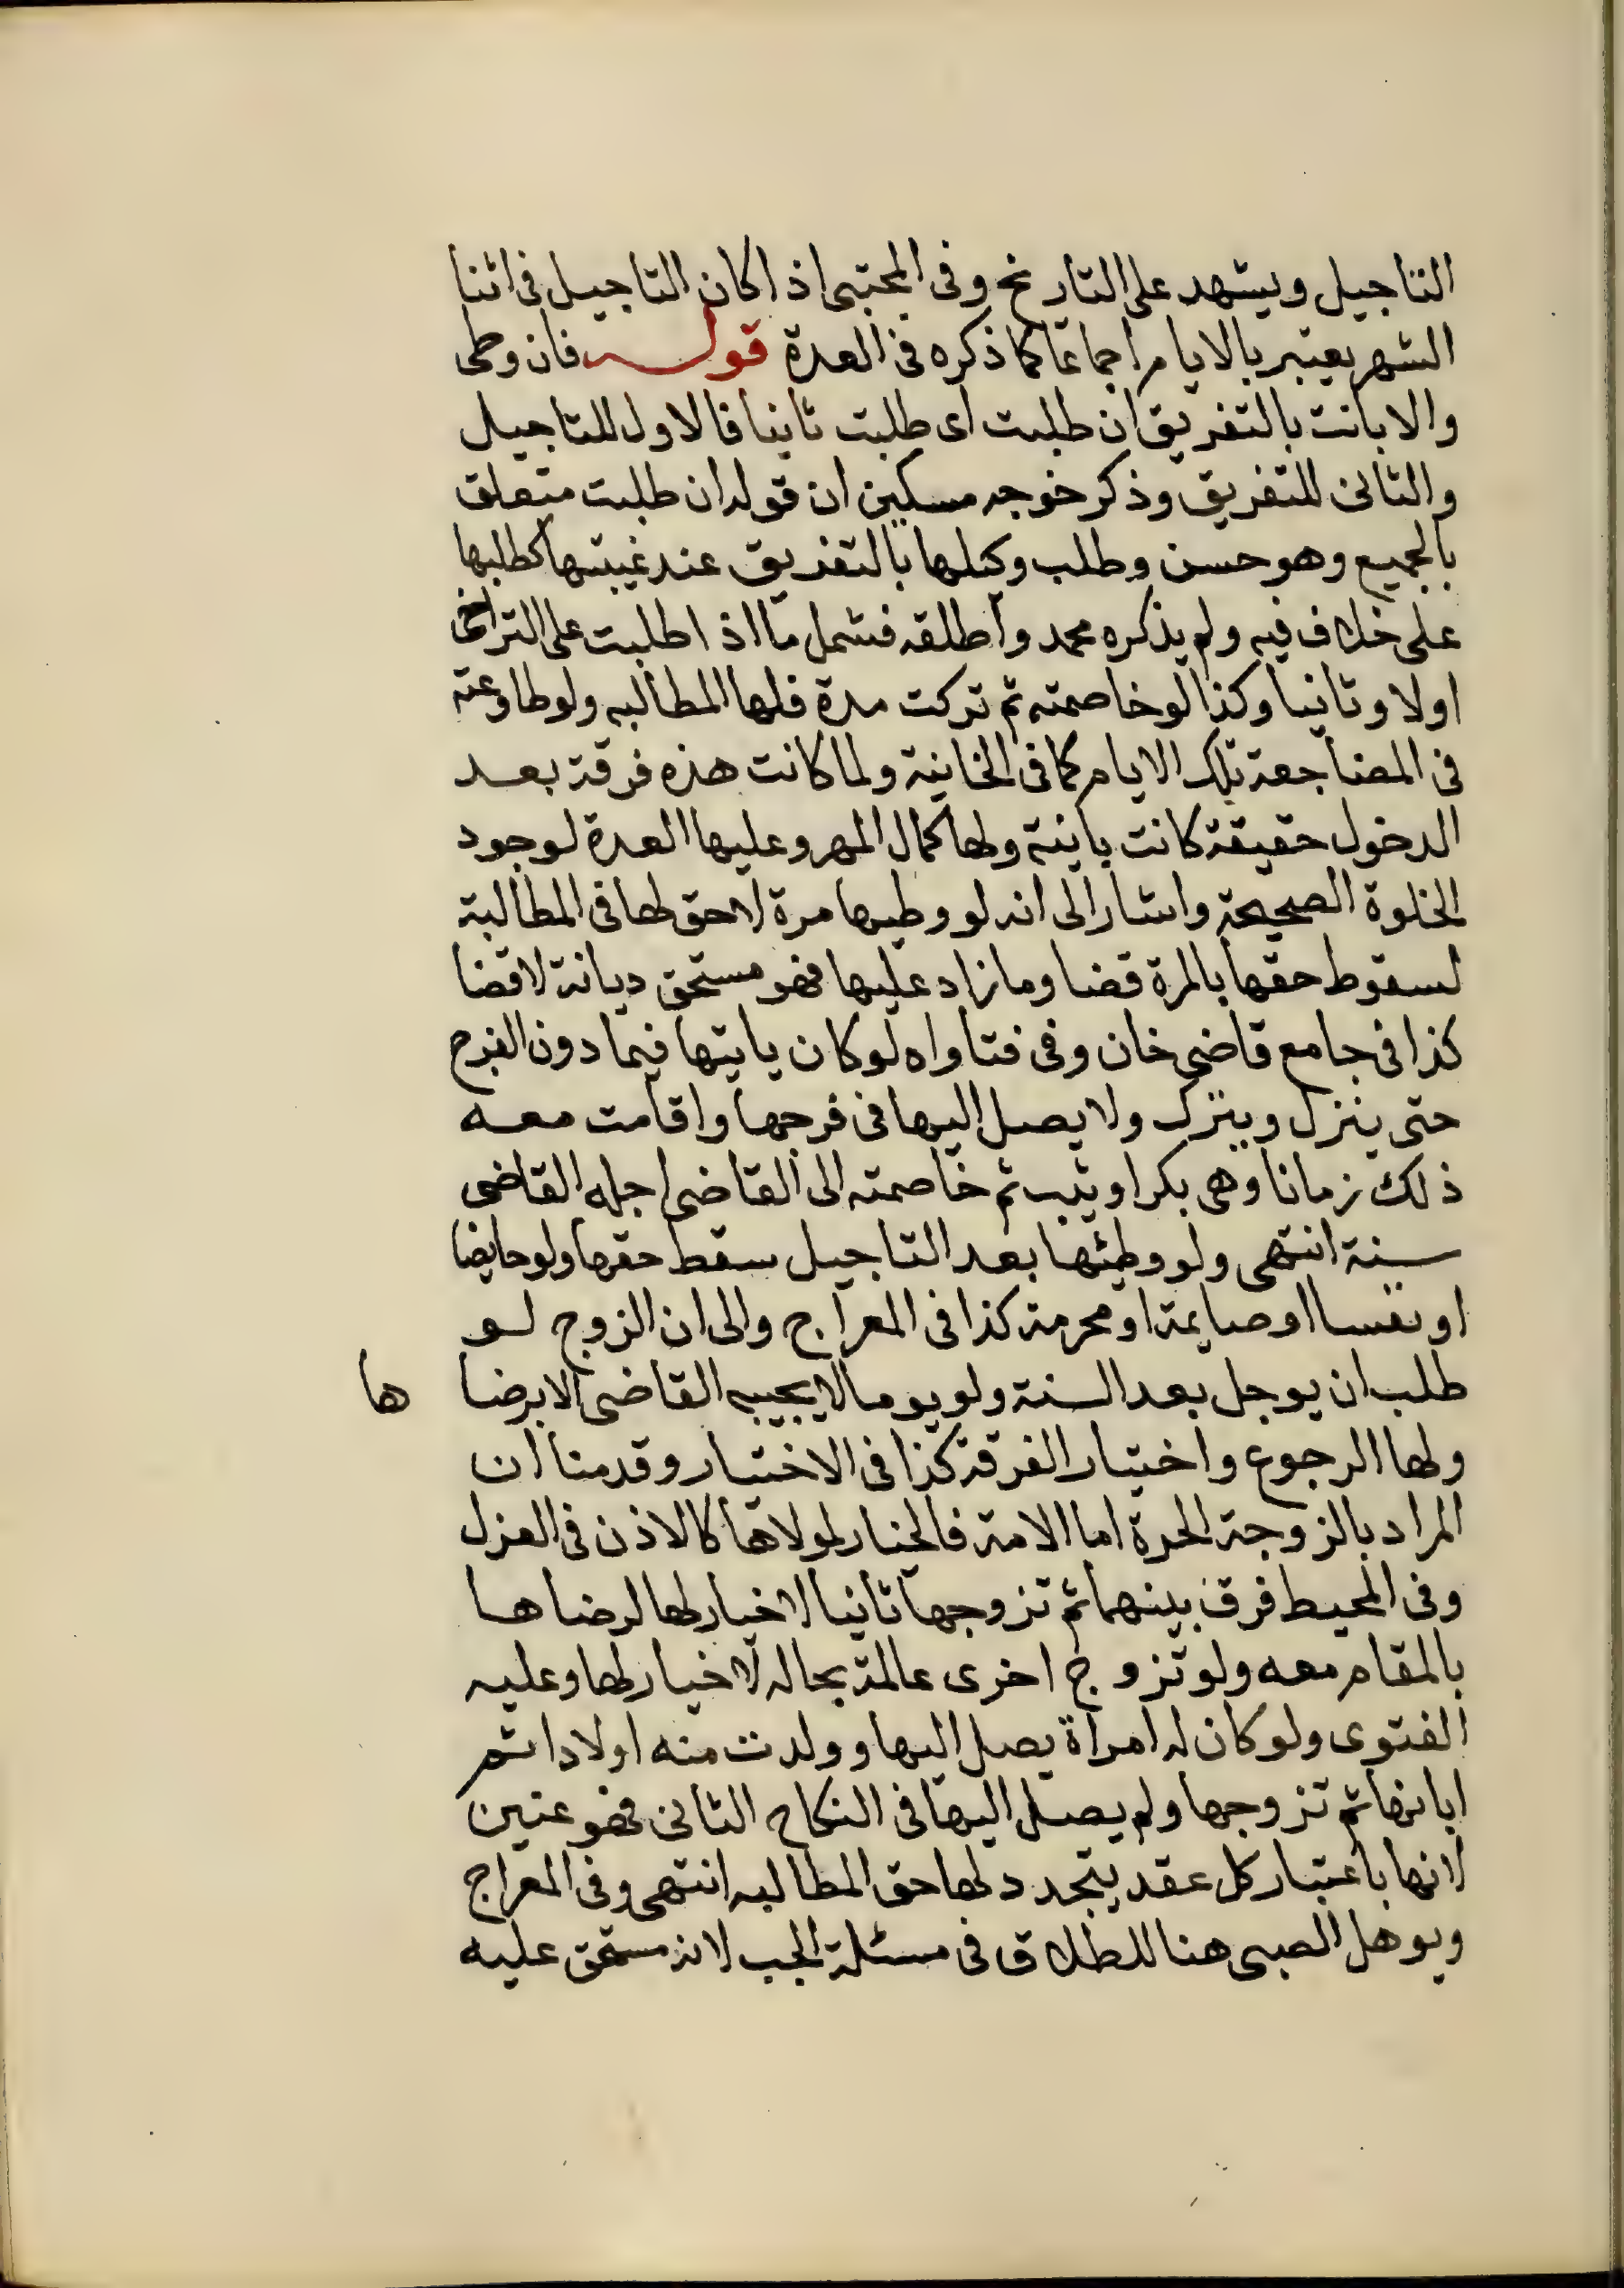 التاجيل ويشهد على التاريخ وفى المجتبى اذا كان التاجيل فى اثنا
الشهر يعتبر بالايام اجماعا كما ذكره فى العدة قوله فان وطى
والا بانت بالتفريق ان طلبت اى طلبت ثانيا فالاول للتاجيل
والثانى للتفريق وذكر خوجه مسكين ان قوله ان طلبت متعلق
بالجميع وهو حسن وطلب وكيلها بالتفريق عند غيبتها كطلبها
على خلاف فيه ولم يذكره محمد واطلقه فشمل ما اذا طلبت على التراخى
اولا وثانيا وكذا لو خاصمته ثم تركت مدة فلها المطالبه ولو طاوعته
فى المضاجعة تلك الايام كما فى الخانية ولما كانت هذه فرقة بعد
الدخول حقيقة كانت باينة ولها كمال المهر وعليها العدة لوجود
الخلوة الصحيحة واشار الى انه لو وطيها مرة لا حق لها فى المطالبة
لسقوط حقها بالمرة قضا وما زاد عليها فهو مستحق ديانة لا قضا
كذا فى جامع قاضى خان وفى فتاواه لو كان ياتيها فيما دون الفرج
حتى ينزل وينزل ولا يصل اليها فى فرجها واقامت معه
ذلك زمانا وهى بكر او ثيب ثم خاصمته الى القاضى اجله القاضى
سنة انتهى ولو وطئها بعد التاجيل سقط حقها ولو حايضا
او نفسا او صايمة او محرمة كذا فى المعراج والى ان الزوج لو
طلب ان يوجل بعد السنة ولو يوما لا يجيبه القاضى الا برضا ها
ولها الرجوع واختيار الفرقة كذا فى الاختيار وقدمنا ان
المراد بالزوجة الحرة اما الامة فالخيار لمولاها كالاذن فى العزل
وفى المحيط فرق بينهما ثم تزوجها ثانيا لا خيار لها لرضاها
بالمقام معه ولو تزوج اخرى عالمة بحاله لا خيار لها وعليه
الفتوى ولو كان له امراة يصل اليها وولدت منه اولادا ثم
ابانها ثم تزوجها ولم يصل اليها فى النكاح الثانى فهو عنين
لانها باعتبار كل عقد يتجدد لها حق المطالبه انتهى وفى المعراج
ويوهل الصبى هنا للطلاق فى مسئلة الجب لانه مستحق عليه